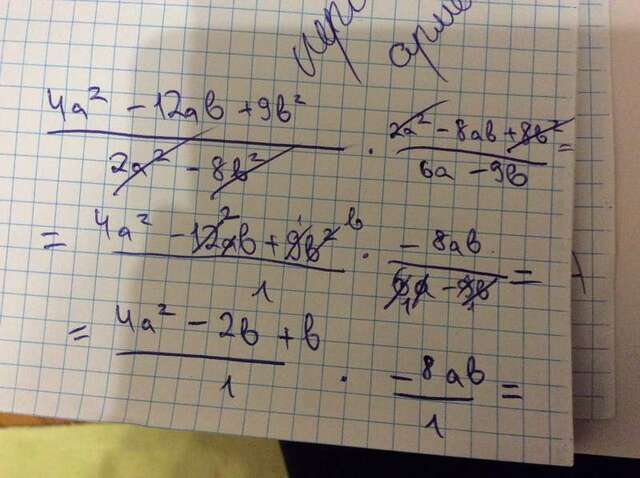 4a² - 12ab + 9b² / 2a² - 8b² · 2a² - 8ab + 8b² / 6a - 9b =
= 4a² - 12ab + 9b² b / 1 · - 8ab / 6a - 9b =
= 4a² - 2b + b / 1 · - 8ab / 1 =